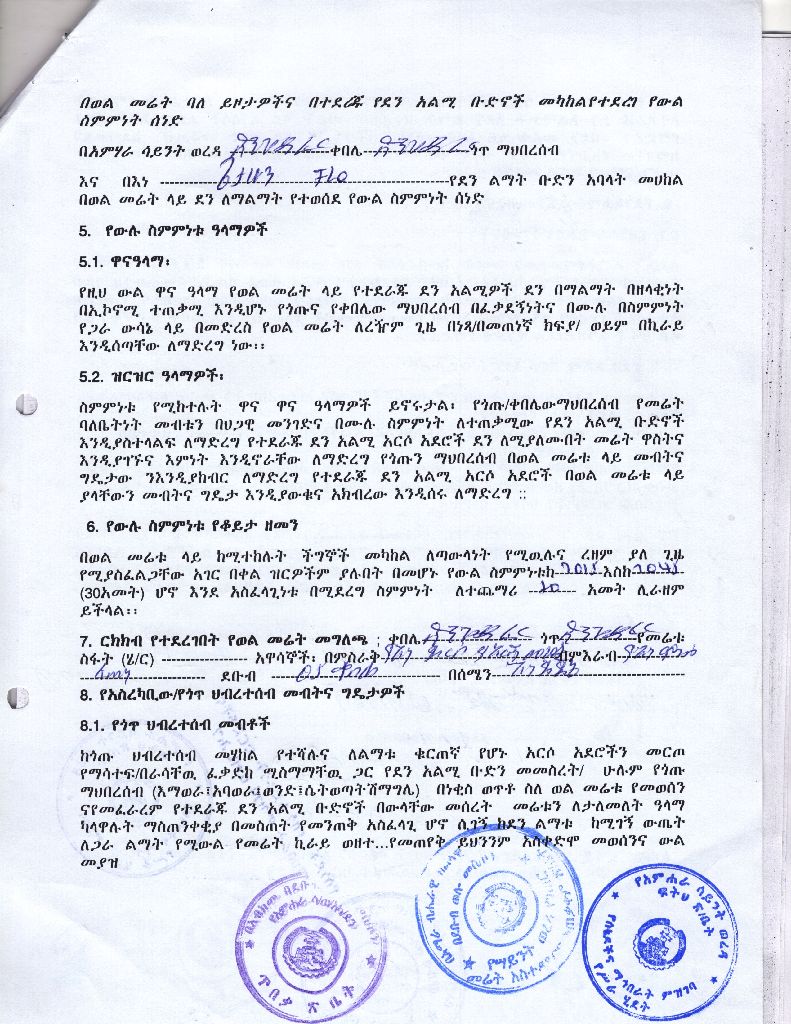 በወል መሬት ባለ ይዞታዎችና በተደራጁ የደን አልሚ ቡድኖች መካከልየተደረገ የውል
ስምምነት ሰነድ
በአምሃራ ሳይንት ወረዳ ቀበሌ ጎጥ ማህበረሰብ
እና በእነ የደን ልማት ቡድን አባላት መሀከል
በወል መሬት ላይ ደን ለማልማት የተወሰደ የውል ስምምነት ሰነድ
5. የውሉ ስምምነቱ ዓላማዎች
5.1. ዋናዓላማ፡
የዚህ ውል ዋና ዓላማ የወል መሬት ላይ የተደራጁ ደን አልሚዎች ደን በማልማት በዘላቂነት
በኢኮኖሚ ተጠቃሚ እንዲሆኑ የጎጡና የቀበሌው ማህበረሰብ በፈቃደኝነትና በሙሉ በስምምነት
የጋራ ውሳኔ ላይ በመድረስ የወል መሬት ለረዥም ጊዜ በነጻ/በመጠነኛ ክፍያ/ ወይም በኪራይ
እንዲሰጣቸው ለማድረግ ነው፡፡
5.2. ዝርዝር ዓላማዎች፡
ስምምነቱ የሚከተሉት ዋና ዋና ዓላማዎች ይኖሩታል፡ የጎጡ/ቀበሌውማህበረሰብ የመሬት
ባለቤትነት መብቱን በህጋዊ መንገድና በሙሉ ስምምነት ለተጠቃሚው የደን አልሚ ቡድኖች
እንዲያስተላልፍ ለማድረግ የተደራጁ ደን አልሚ አርሶ አደሮች ደን ለሚያለሙበት መሬት ዋስትና
እንዲያገኙና እምነት እንዲኖራቸው ለማድረግ የጎጡን ማህበረሰብ በወል መሬቱ ላይ መብትና
ግዴታው ንእንዲያከብር ለማድረግ የተደራጁ ደን አልሚ አርሶ አደሮች በወል መሬቱ ላይ
ያላቸውን መብትና ግዴታ እንዲያውቁና አክብረው እንዲሰሩ ለማድረግ ::
6. የውሉ ስምምነቱ የቆይታ ዘመን
በወል መሬቱ ላይ ከሚተከሉት ችግኞች መካከል ለጣውላነት የሚዉሉና ረዘም ያለ ጊዜ
የሚያስፈልጋቸው አገር በቀል ዝርዎችም ያሉበት በመሆኑ የውል ስምምነቱከ 2015 እስከ 2045
(30አመት) ሆኖ እንደ አስፈላጊነቱ በሚደረግ ስምምነት ለተጨማሪ 10 አመት ሊራዘም
ይችላል፡፡
7. ርክክብ የተደረገበት የወል መሬት መግለጫ ፡ ቀበሌ ጎጥ የመሬቱ
ስፋት (ሄ/ር) አዋሳኞች፡ በምስራቅ በምእራብ
ደቡብ በሰሜን
8. የአስረካቢው/የጎጥ ህብረተሰብ መብትና ግዴታዎች
8.1. የጎጥ ህብረተሰብ መብቶች
ከጎጡ ህብረተሰብ መሃከል የተሻሉና ለልማቱ ቁርጠኛ የሆኑ አርሶ አደሮችን መርጦ
የማሳተፍ/በራሳቸዉ ፈቃድከ ሚስማማቸዉ ጋር የደን አልሚ ቡድን መመስረት/ ሁሉም የጎጡ
ማህበረሰብ (እማወራ፤አባወራ፤ወንድ፤ሴትወጣትሽማግሌ) በነቂስ ወጥቶ ስለ ወል መሬቱ የመወሰን
ናየመፈራረም የተደራጁ ደን አልሚ ቡድኖች በውላቸው መሰረት መሬቱን ለታለመለት ዓላማ
ካላዋሉት ማስጠንቀቂያ በመስጠት የመንጠቅ አስፈላጊ ሆኖ ሲገኝ ከደን ልማቱ ከሚገኝ ውጤት
ለጋራ ልማት የሚውል የመሬት ኪራይ ወዘተ...የመጠየቅ ይህንንም አስቀድሞ መወሰንና ውል
መያዝ
ጥበቃ ጽ ቤት
የአምሐራ ሳይንት ወረዳ
ፍትህ ጽ ቤት